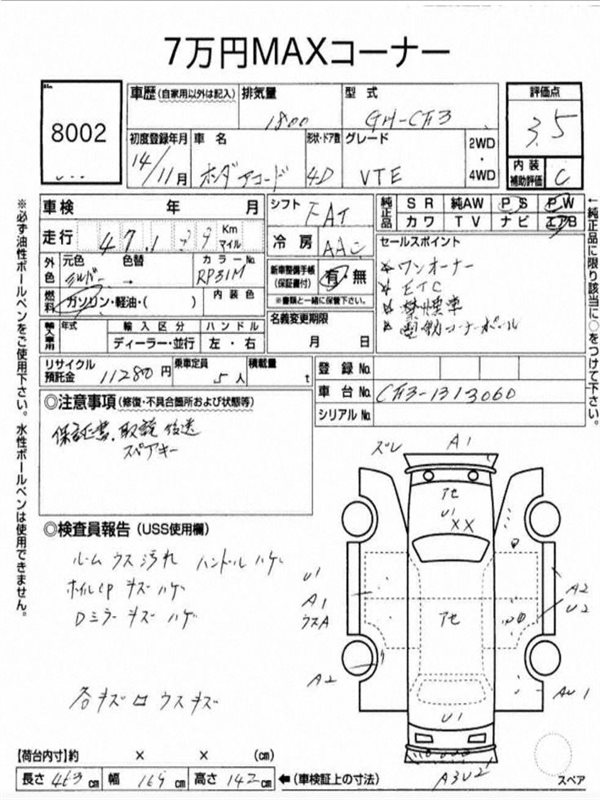 7万円MAXコーナー
8002
車歴(自家用以外は記入) 排気量 型式 評価点
1800 GH-CF3 3.5
初度登録年月 車名 形状・ドア数 グレード 2WD・4WD 内装補助評価 C
14/11月 ホンダアコード 4D VTE
車検 年 月 シフト FAT 純正品 SR 純AW PS PW
カワ TV ナビ エアB
走行 Km マイル 冷房 AAC セールスポイント
外色 元色 色替 カラーNo. 新車整備手帳(保証書付) 有 無
シルバー → RP31M ※書類と一緒に保管下さい。
ワンオーナー
ETC
禁煙車
電動コーナーポール
燃料 ガソリン・軽油・( ) 内装色 名義変更期限
月 日
輸入車用 年式 輸入区分 ハンドル
ディーラー・並行 左・右
リサイクル預託金 11280円 乗車定員 5人 積載量 t
登録No.
車台No. CF3-1313060
シリアルNo.
◎注意事項(修復・不具合箇所および状態等)
保証書、取説 後送
スペアキー
◎検査員報告(USS使用欄)
ルーム ウス汚れ ハンドルハゲ
ホイルCP キズハゲ
Dミラーキズハゲ
各キズロ ウスキズ
ズレ A1
U1
XX
U1
A1
ウスA
A2
U2
A2
AU1
U1
A3U2
スペア
【荷台内寸】約 × × (cm)
長さ 463cm 幅 169cm 高さ 142cm ←(車検証上の寸法)
※必ず油性ボールペンをご使用下さい。水性ボールペンは使用できません。
←純正品に限り該当に○をつけて下さい。